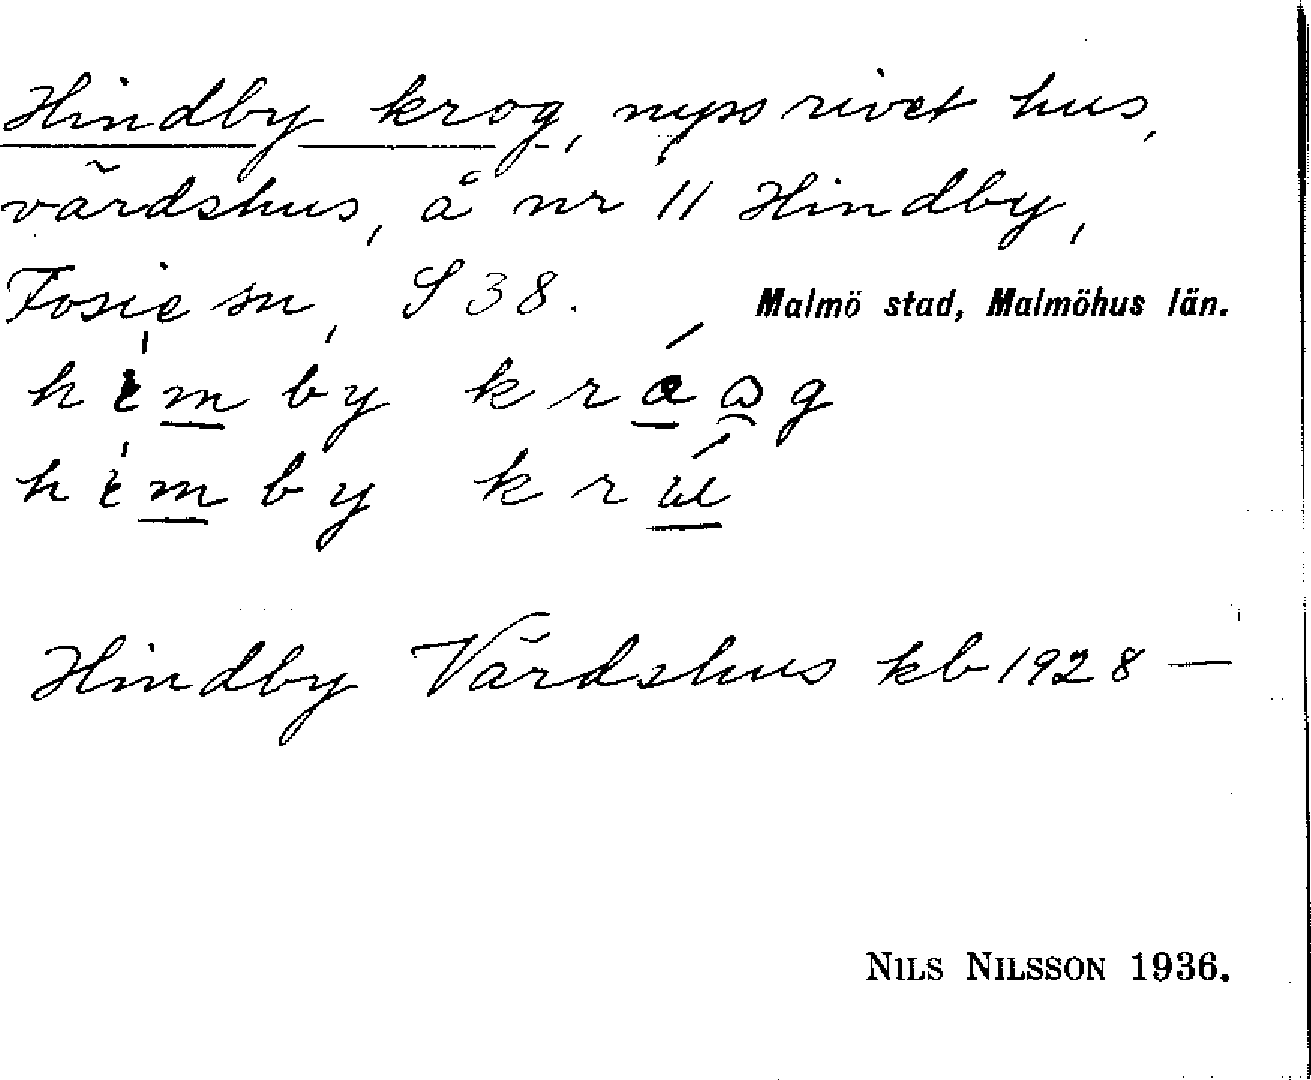 Hindby krog, nyss rivet hus,
värdshus, å nr 11 Hindby,
Fosie sn, S 38. Malmö stad, Malmöhus län.
himby
himby
Hindby Värdshus kb 1928 —
NILS NILSSON 1936.